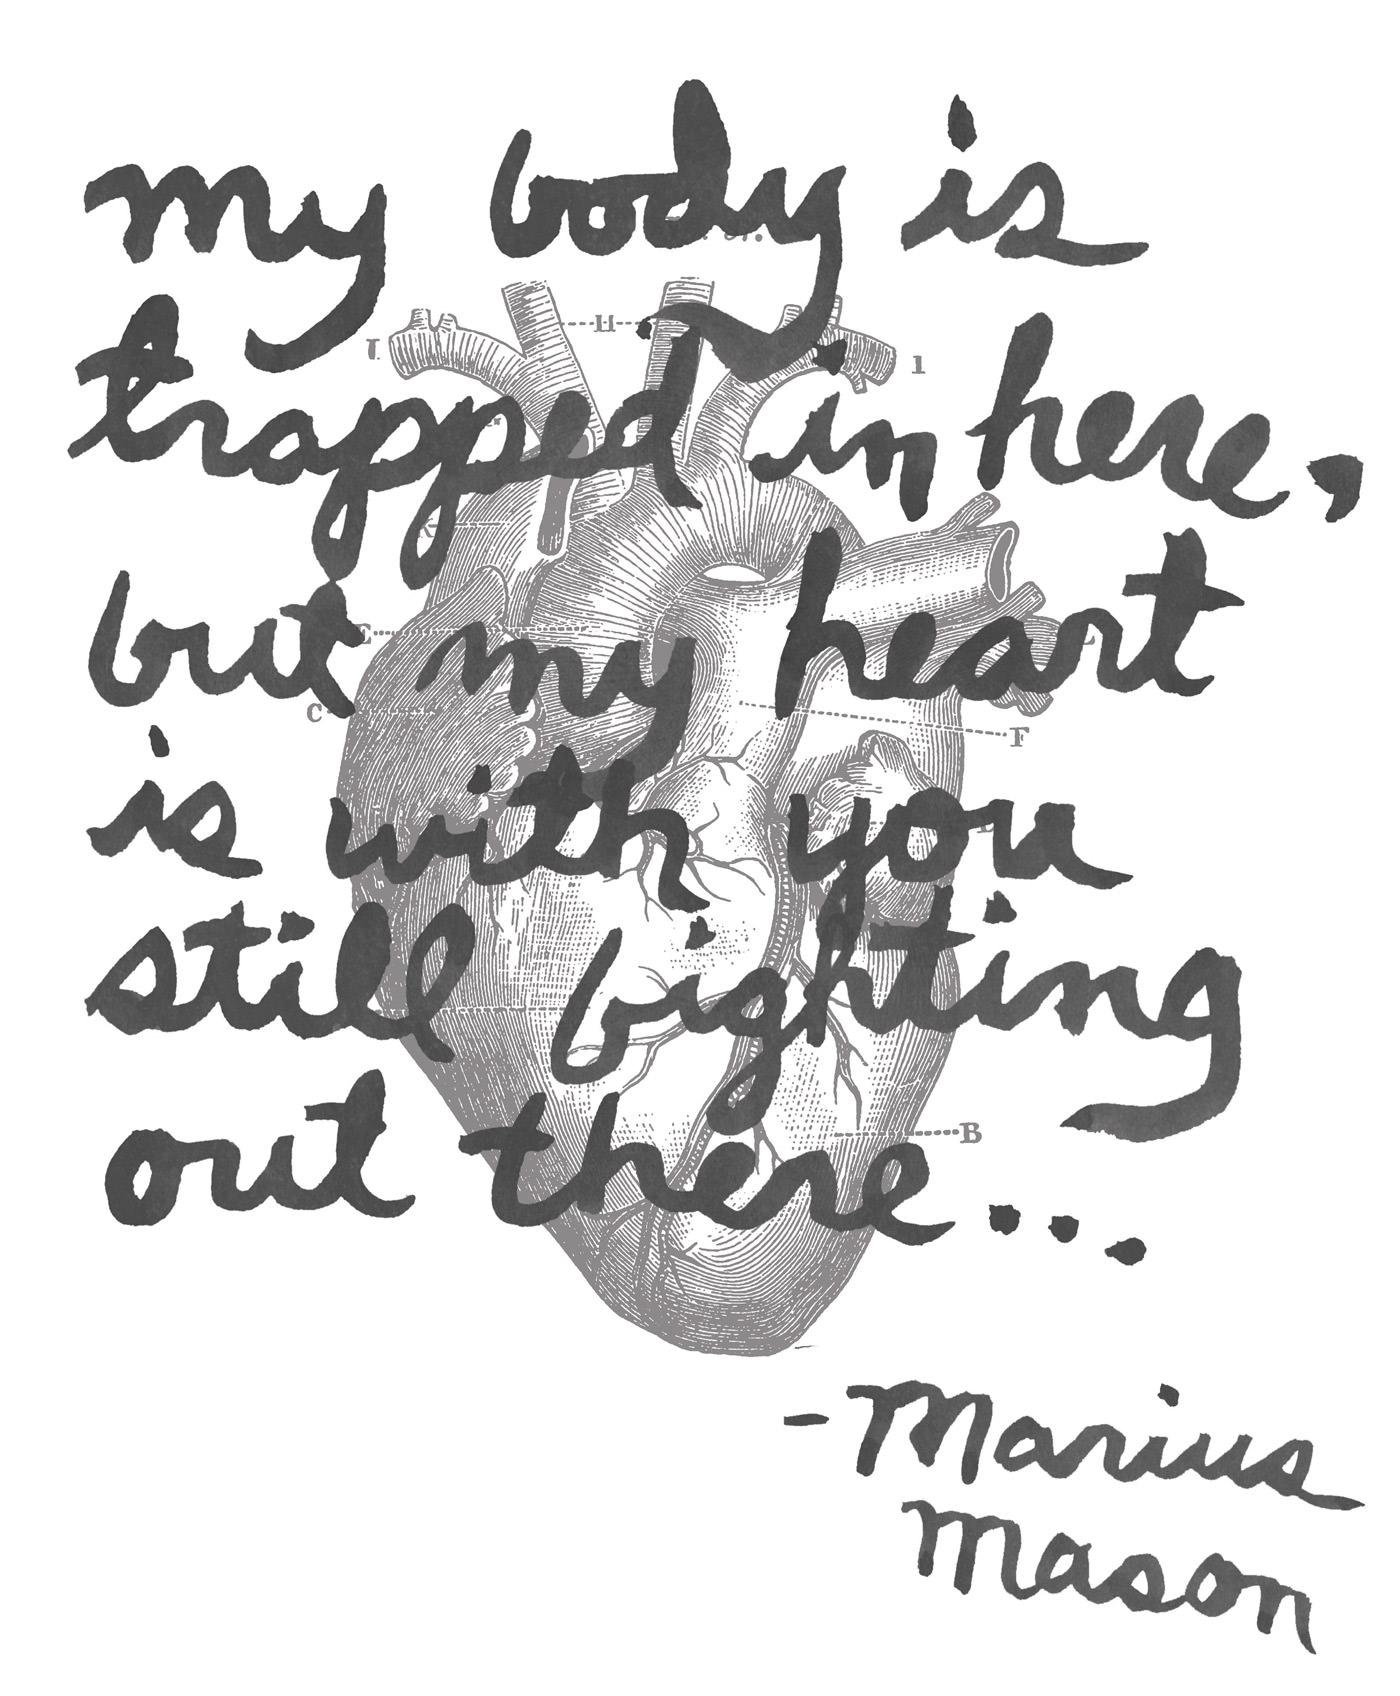 my body is
trapped in here,
but my heart
is with you
still fighting
out there...
-Marius
Mason
H
I
1
K
E
C
F
B